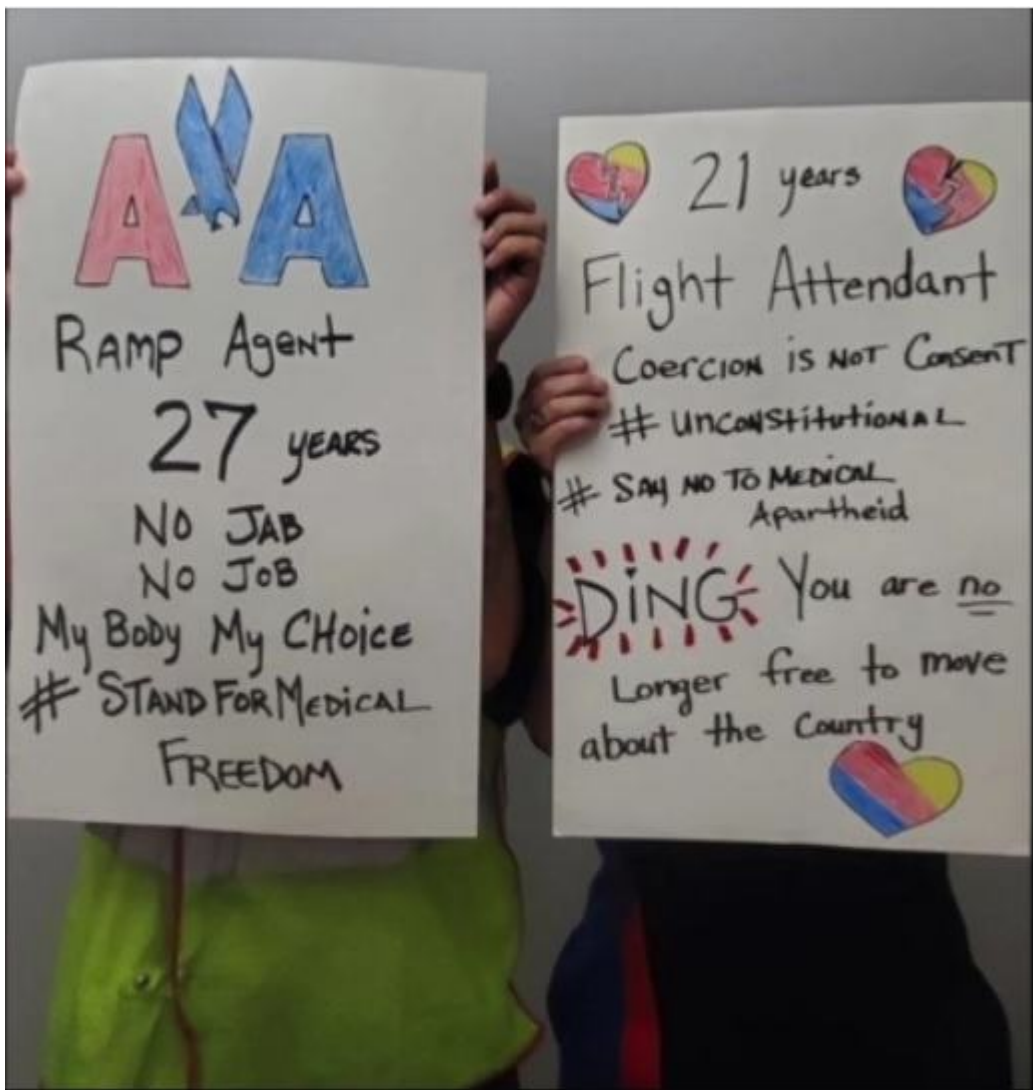 AA
RAMP AGENT
27 YEARS
NO JAB
NO JOB
My BODY My CHOICE
# STAND FOR MEDICAL
FREEDOM
21 years
Flight Attendant
COERCION is NOT CONSENT
# UNCONSTITUTIONAL
# SAY NO TO MEDICAL
Apartheid
DING You are no
Longer free to move
about the Country